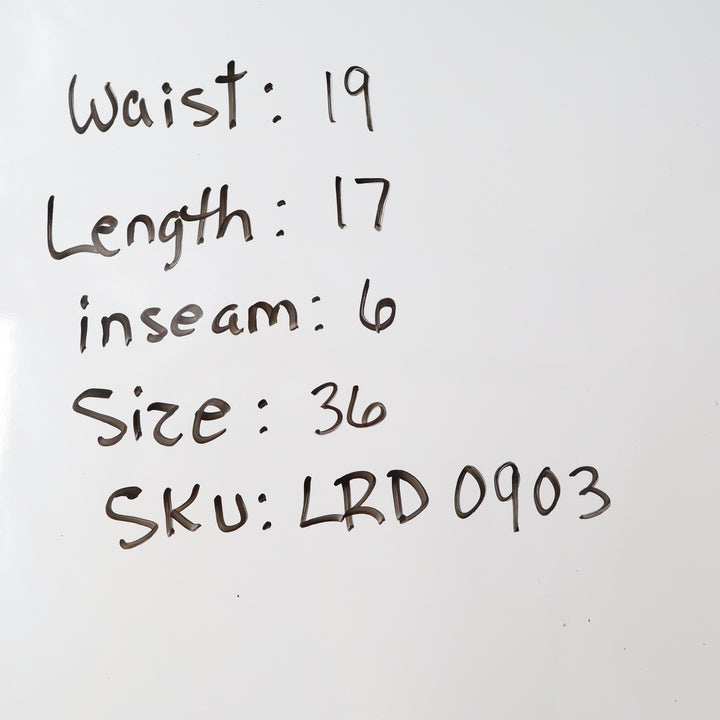 Waist: 19
Length: 17
inseam: 6
Size: 36
SKU: LRD 0903